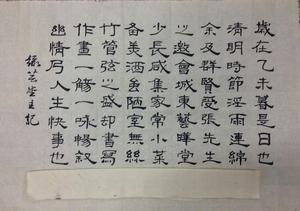 歲在乙未暮是日也
清明時節淫雨連綿
余及群賢受張先生
之邀會城東藝曄堂
少長咸集家常小菜
备美酒虽陋室無絲
竹管弦之盛却書寫
作畫一觞一咏暢叙
幽情乃人生快事也
堂主記